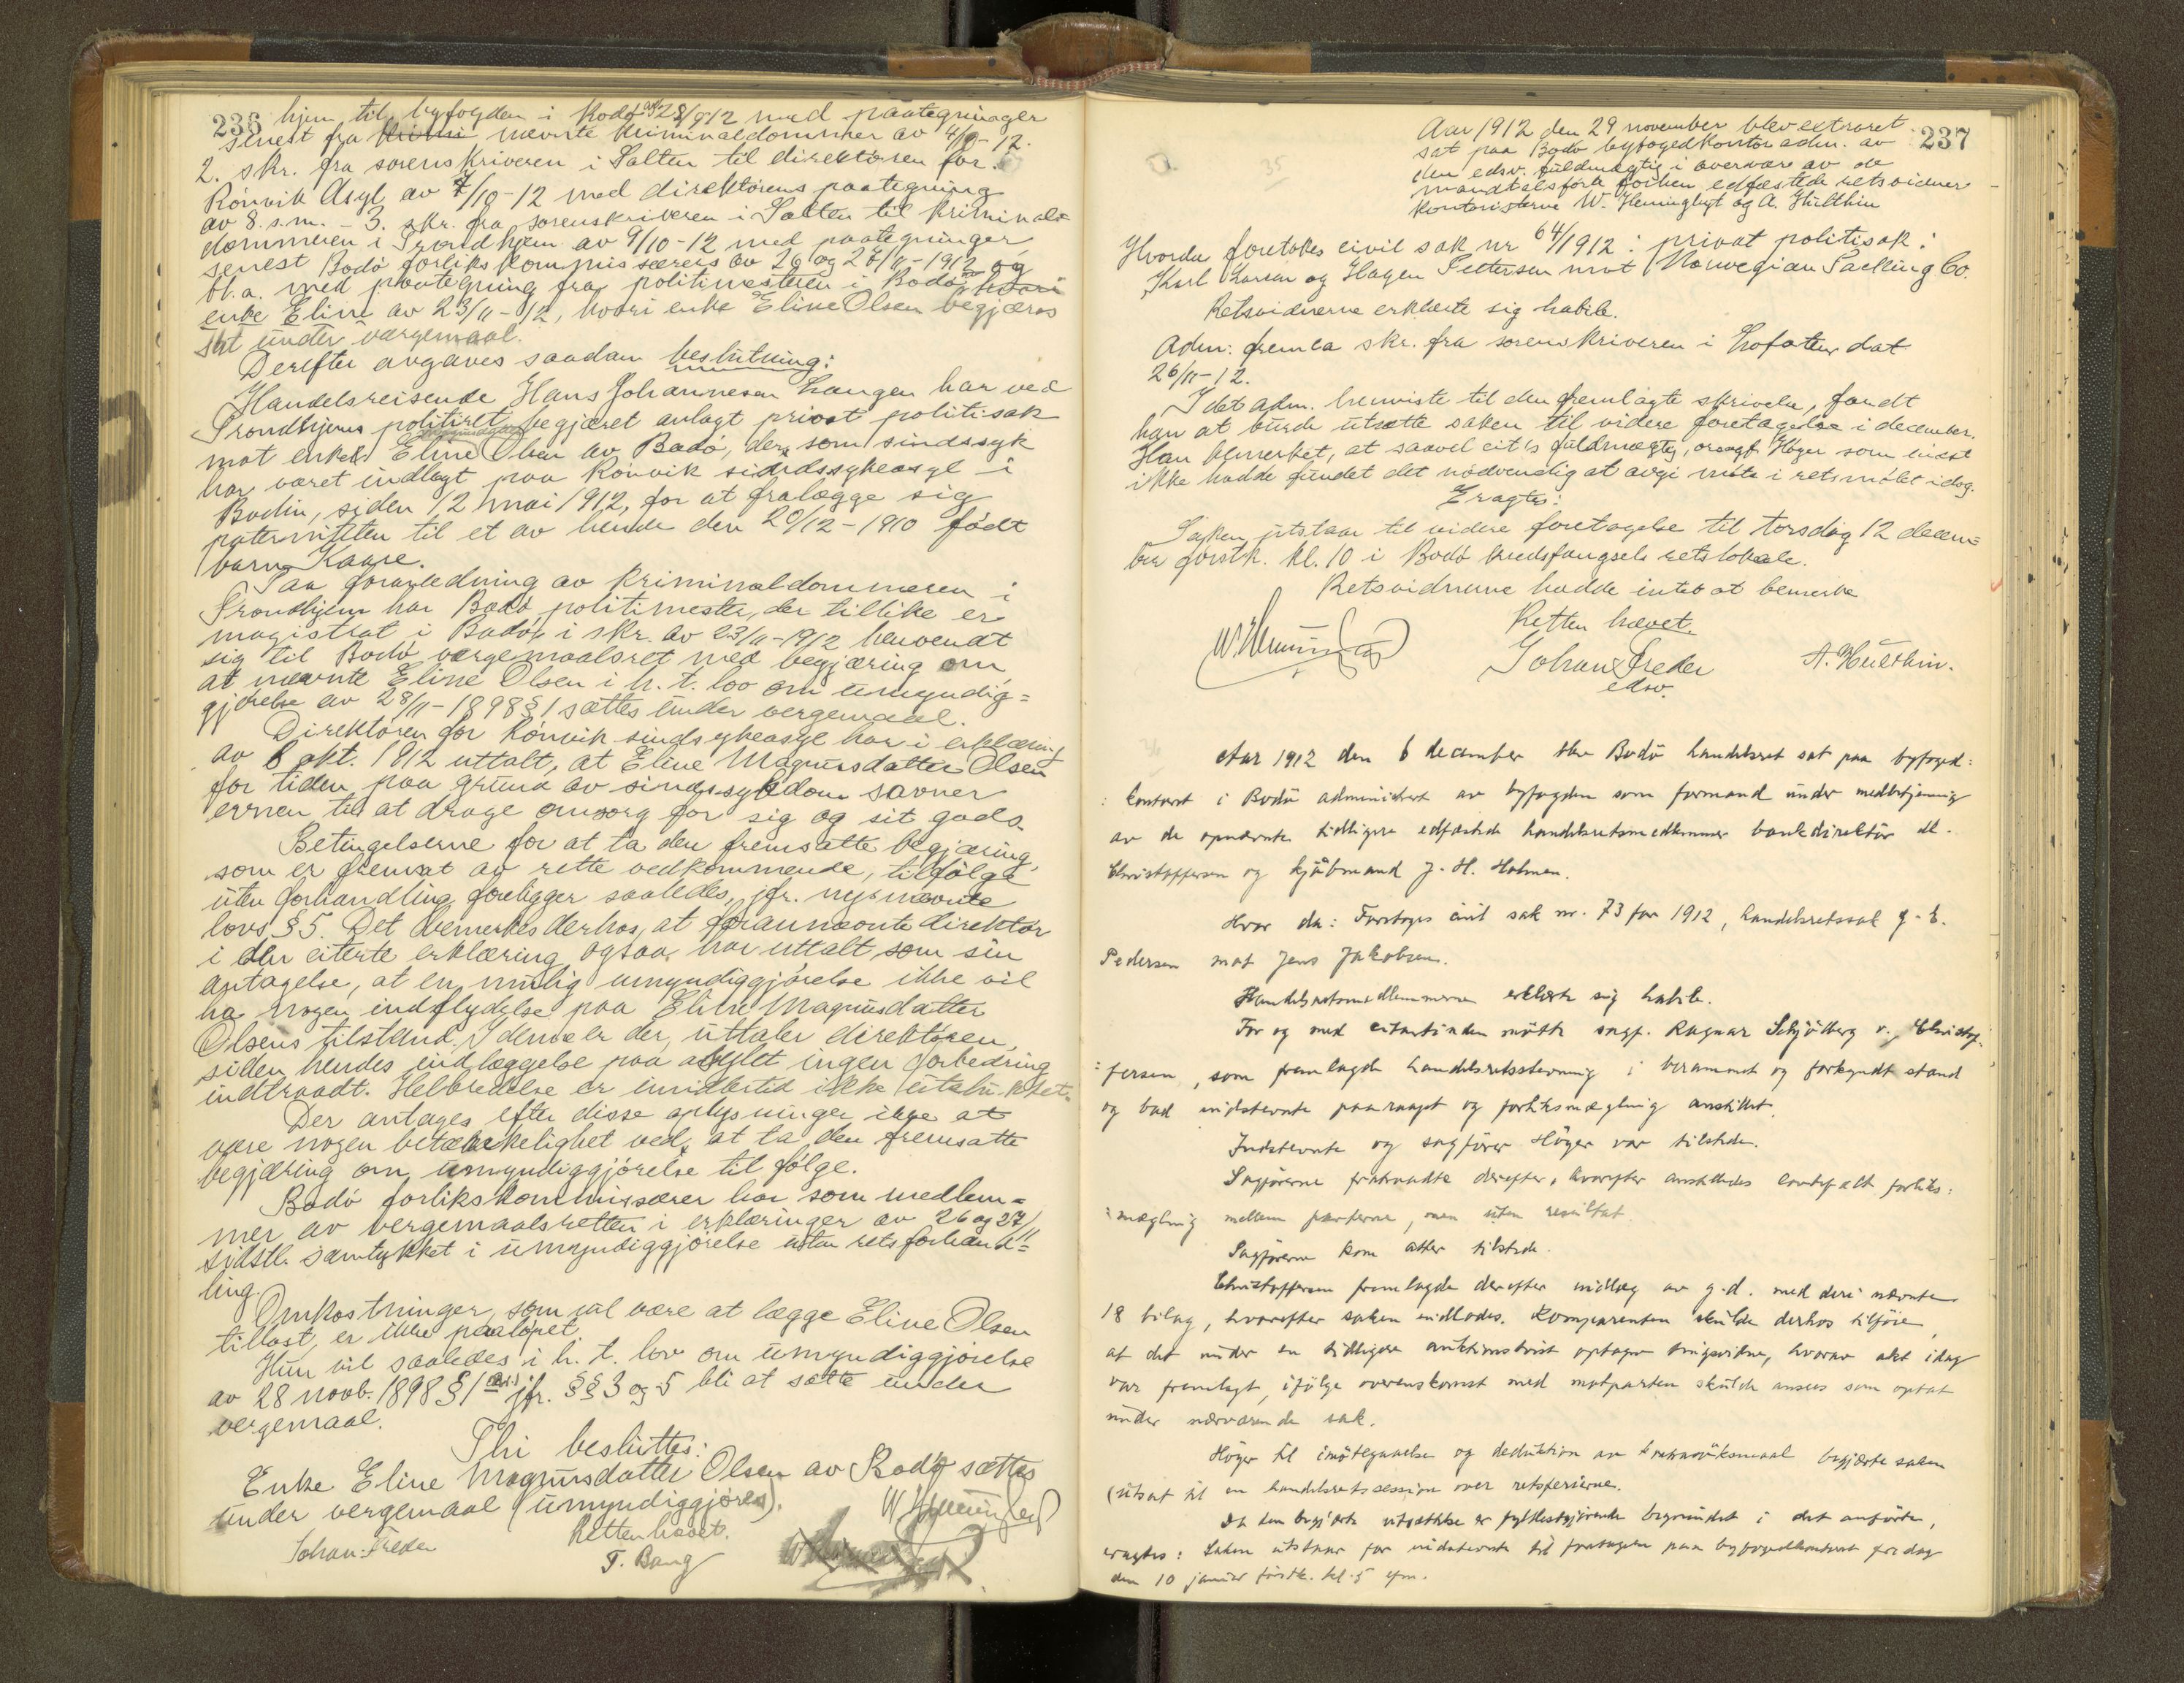 236 hjem til byfogden i Bodø av 28/9 12 med paategninger
senest fra nævnte kriminaldommer av 4/10-12.
2. skr. fra sorenskriveren i Salten til direktøren for
Rönvik Asyl av 7/10-12 med direktørens paategning
av 8. s.m. - 3. skr. fra sorenskriveren i Salten til kriminal=
dommeren i Trondhjem av 9/10-12 med paategninger
senest Bodö forlikskommissærers av 26 og 27/11-1912 og
bl.a. med paategning fra politimesteren i Bodö
enke Eline av 23/11-12, hvori enke Eline Olsen begjæres
sat under vergemaal.
Derefter avgaves saadan beslutning:
Handelsreisende Hans Johannesen Langen har ved
Trondhjems politiret begjæret anlagt privat politisak
mot enke Eline Magnusdatter Olsen av Bodö, der som sindssyk
har været indlagt paa Rönvik sindssykeasyl i
Bodin, siden 12 mai 1912, for at fralægge sig
paterniteten til et av hende den 20/12-1910 født
barn Kaare.
Paa foranledning av kriminaldommeren i
Trondhjem har Bodö politimester, der tillike er
magistrat i Bodö, i skr. av 23/11-1912 henvendt
sig til Bodö vergemaalsret med begjæring om,
at nævnte Eline Olsen i h. t. lov om umyndig=
gjörelse av 28/11-1898 § 1 sættes under vergemaal.
Direktören for Rönvik sindssykeasyl har i erklæring
av 8 okt. 1912 uttalt, at Eline Magnusdatter Olsen
for tiden paa grund av sindssykdom savner
evnen til at drage omsorg for sig og sit gods.
Betingelserne for at ta den fremsatte begjæring,
som er fremsat av rette vedkommende, tilfölge
uten forhandling foreligger saaledes, jfr. nysnævnte
lovs § 5. Det bemerkes derhos, at forannævnte direktör
i den citerte erklæring ogsaa har uttalt som sin
antagelse, at en mulig umyndiggjörelse ikke vil
ha nogen indflydelse paa Eline Magnusdatter
Olsens tilstand. I denne er der, uttaler direktören,
siden hendes indlæggelse paa asylet ingen forbedring
indtraadt. Helbredelse er imidlertid ikke utelukket.
Der antages efter disse oplysninger ikke at
være nogen betænkelighet ved, at ta den fremsatte
begjæring om umyndiggjörelse til fölge.
Bodö forlikskommissærer har som medlem=
mer av vergemaalsretten i erklæringer av 26 og 27/11
sidstl. samtykket i umyndiggjörelse uten retsforhand=
ling.
Omkostninger, som vil være at lægge Eline Olsen
tillast, er ikke paalöpet.
Hun vil saaledes i h. t. lov om umyndiggjörelse
av 28 novb. 1898 § 1 jfr. §§ 3 og 5 bli at sætte under
vergemaal.
Thi besluttes:
Enke Eline Magnusdatter Olsen av Bodö sættes
under vergemaal (umyndiggjöres).
Retten hævet.
Johan Freder
T. Bang
237
Aar 1912 den 29 november blev extraret
sat paa Bodö byfogedkontor adm. av
den edsv. fuldmægtig i overvære av de
mandtalsförte forhen edfæstede retsvidner
kontoristerne W. Hemingbyt og A. Hulthin
35
Hvorda foretokes civil sak nr 64/1912: privat politisak:
Karl Larsen og Hagen Pettersen mot Norwegian Packing Co.
Retsvidnerne erklærte sig habile.
Adm: fremla skr. fra sorenskriveren i Lofoten dat
26/11-12.
Idet adm. henviste til den fremlagte skrivelse, fandt
han at burde utsætte saken til videre foretagelse i december.
Han bemerket, at saavel cit's fuldmægtig, orsagf. Höyer som indst
ikke hadde fundet det nödvendig at avgi möte i retsmötet idag.
Eragtes:
Saken utstaar til videre foretagelse til torsdag 12 decem=
ber förstk. kl. 10 i Bodö kredsfængsels retslokale.
Retsvidnerne hadde intet at bemerke
Retten hævet.
Johan Freder
edsv.
A. Hulthin.
36
Aar 1912 den 6 december blev Bodö handelsret sat paa byfoged:
: kontoret i Bodö administrert av byfogden som formand under medbetjening
av de opnævnte tidligere edfæstede handelsretsmedlemmer bankdirektör
Christoffersen og kjöbmand J. H. Holmen.
Hvor da: Foretoges civil sak nr. 73 for 1912, handelsretssak
Pedersen mot Jens Jakobsen.
Handelsretsmedlemmerne erklærte sig habile.
For og med citantinden mötte sagf. Ragnar Schjölberg v. Christof:
: fersen, som fremlagde handelsretsstevning i berammet og forkyndt stand
og bad indstevnte paaraapt og forliksmægling anstillet.
Indstevnte og sagförer Höyer var tilstede.
Sagförerne fratraadte derefter, hvorefter anstilledes lovbefalt forliks:
: mægling mellem parterne, men uten resultat.
Sagförerne kom atter tilstede.
Christoffersen fremlagde derefter indlæg av g.d. med deri nævnte
18 bilag, hvorefter saken indlodes. Komparenten skulde derhos tilföie,
at det under en tidligere auktionstvist optagne tingsvidne, hvorav akt idag
var fremlagt, ifölge overenskomst med motparten skulde ansees som optat
under nærværende sak.
Höyer til imötegaaelse og deduktion av kontrasöksmaal begjærte saken
utsat til en handelsretssession over retsferierne.
Da den begjærte utsættelse er fyldestgjörende begrundet i det anförte,
eragtes: Saken utstaar for indstevnte til foretagelse paa byfogedkontoret fredag
den 10 januar förstk. kl. 5 efm.